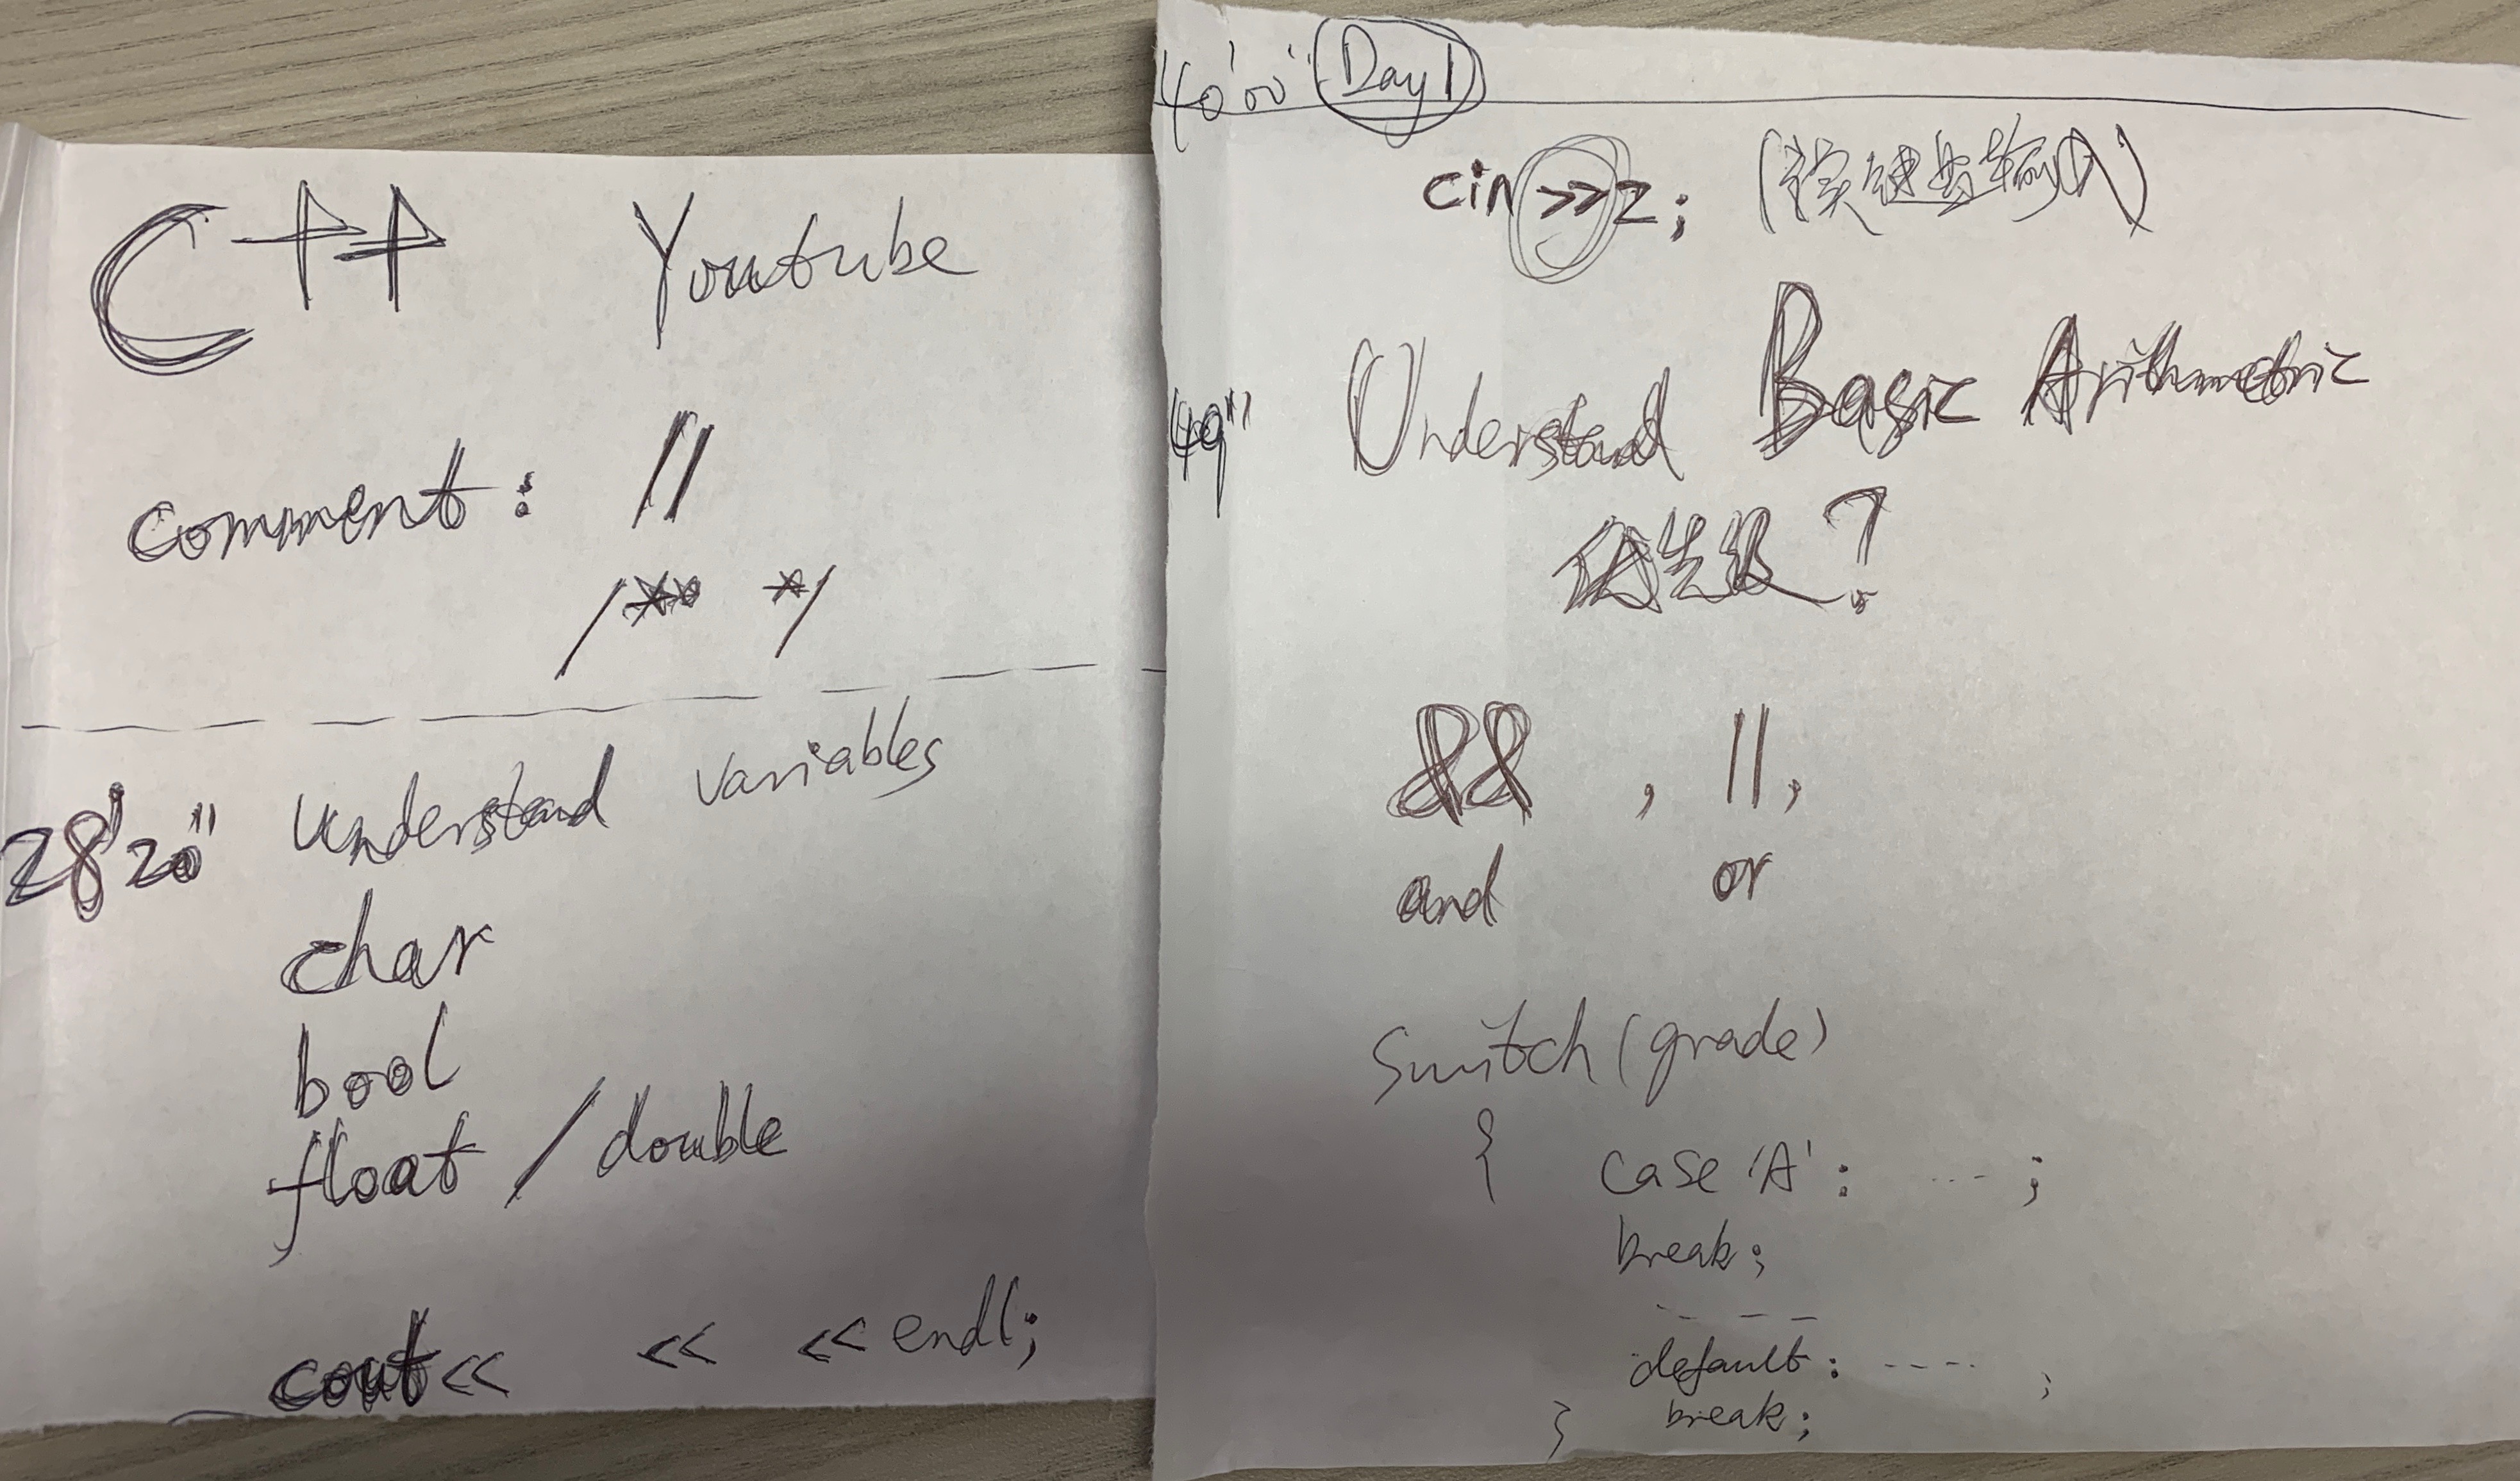 C++ Youtube
comment: //
/** */
28'20" understand variables
char
bool
float / double
cout<< << <<endl;
40'00" Day 1
cin >>z; (读键盘输入)
49" Understand Basic Arithmetric
优先级?
&& , ||,
and or
Switch (grade)
{ case 'A': ---- ;
break;
- - -
default: ---- ;
break;
}